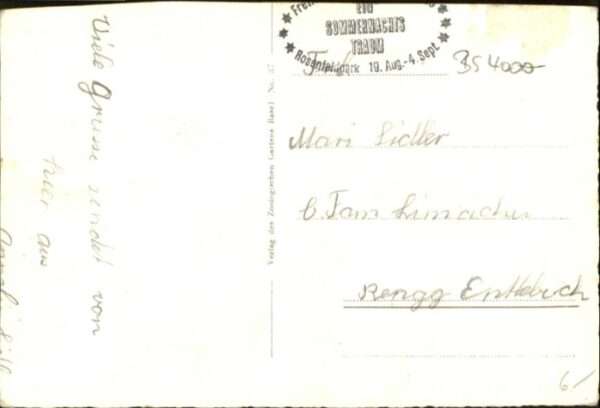 Viele Grüsse sendet von
hier aus
Verlag des Zoologischen Gartens Basel No. 37
EIN
SOMMERNACHTS
TRAUM
Rosenfeldpark 19. Aug.-4. Sept.
BS 4000
Mari Sidler
b. Fam Limacher
Rengg Entlebuch
6/-